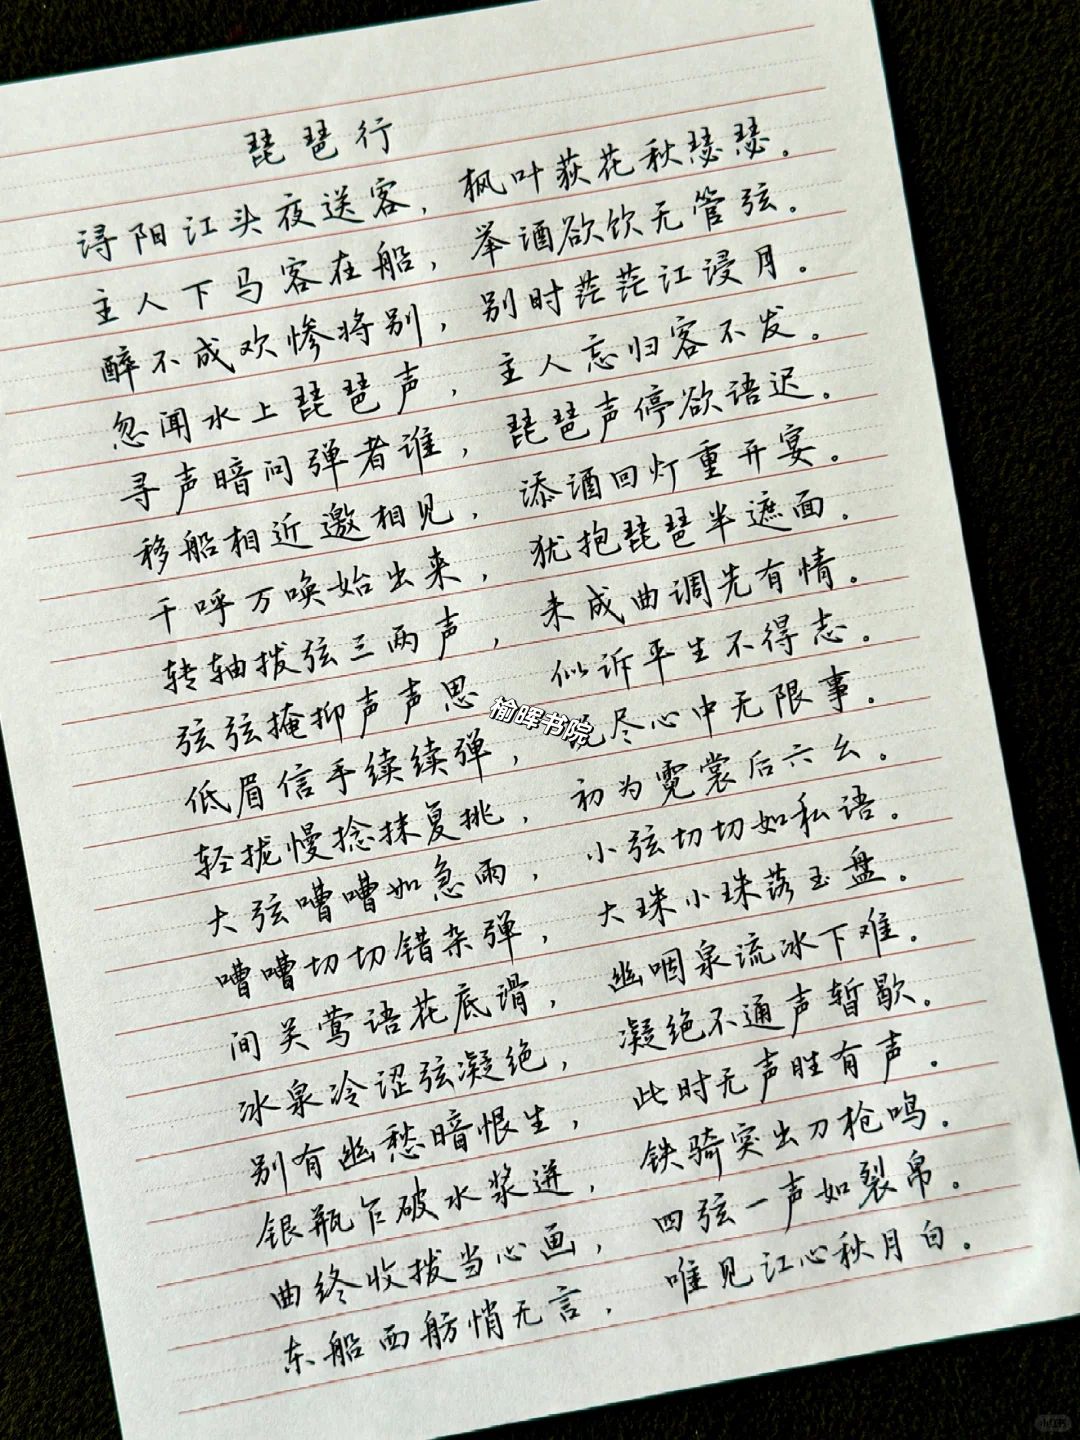 琵琶行
浔阳江头夜送客，枫叶荻花秋瑟瑟。
主人下马客在船，举酒欲饮无管弦。
醉不成欢惨将别，别时茫茫江浸月。
忽闻水上琵琶声，主人忘归客不发。
寻声暗问弹者谁，琵琶声停欲语迟。
移船相近邀相见，添酒回灯重开宴。
千呼万唤始出来，犹抱琵琶半遮面。
转轴拨弦三两声，未成曲调先有情。
弦弦掩抑声声思 似诉平生不得志。
榆晖书院
低眉信手续续弹，尽心中无限事。
轻拢慢捻抹复挑，初为霓裳后六幺。
大弦嘈嘈如急雨，小弦切切如私语。
嘈嘈切切错杂弹，大珠小珠落玉盘。
间关莺语花底滑，幽咽泉流冰下难。
冰泉冷涩弦凝绝，凝绝不通声暂歇。
别有幽愁暗恨生，此时无声胜有声。
银瓶乍破水浆迸，铁骑突出刀枪鸣。
曲终收拨当心画，四弦一声如裂帛。
东船西舫悄无言，唯见江心秋月白。
小红书